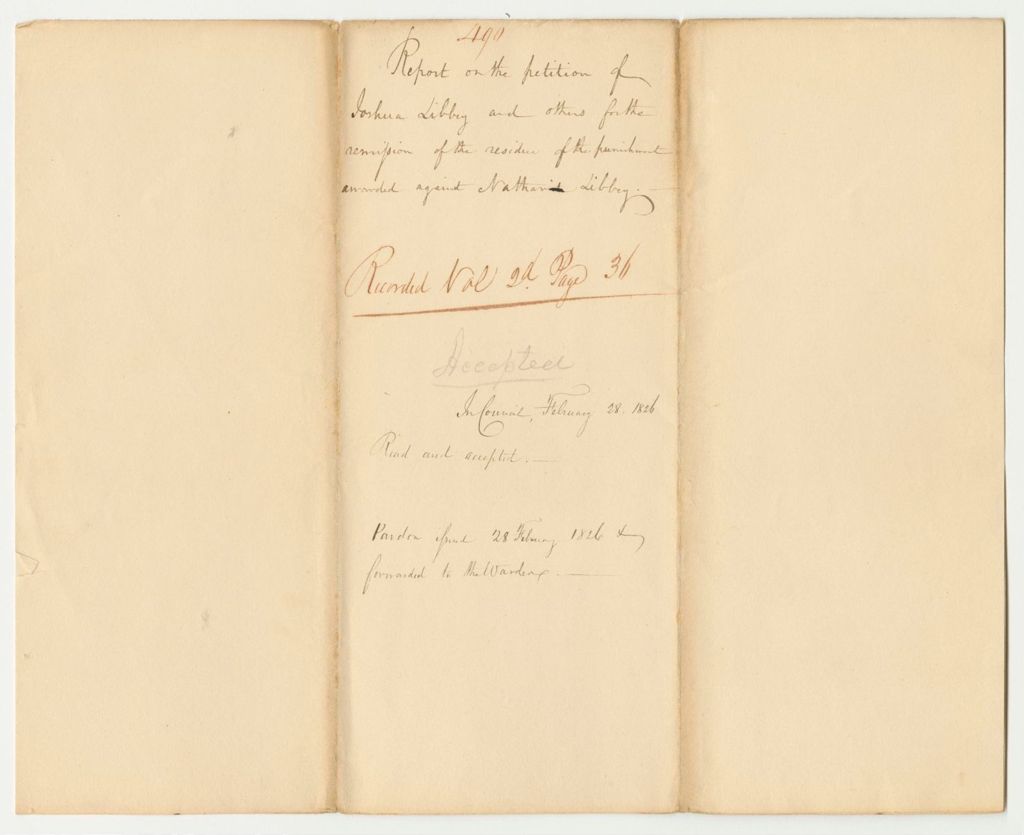 490
Report on the petition of
Joshua Libbey and others for the
remission of the residue of the punishment
awarded against Nathan Libbey.
Recorded Vol 2d. Page 36
Accepted
In Council, February 28. 1826
Read and accepted.
Pardon issued 28 February 1826 &
forwarded to the Warden